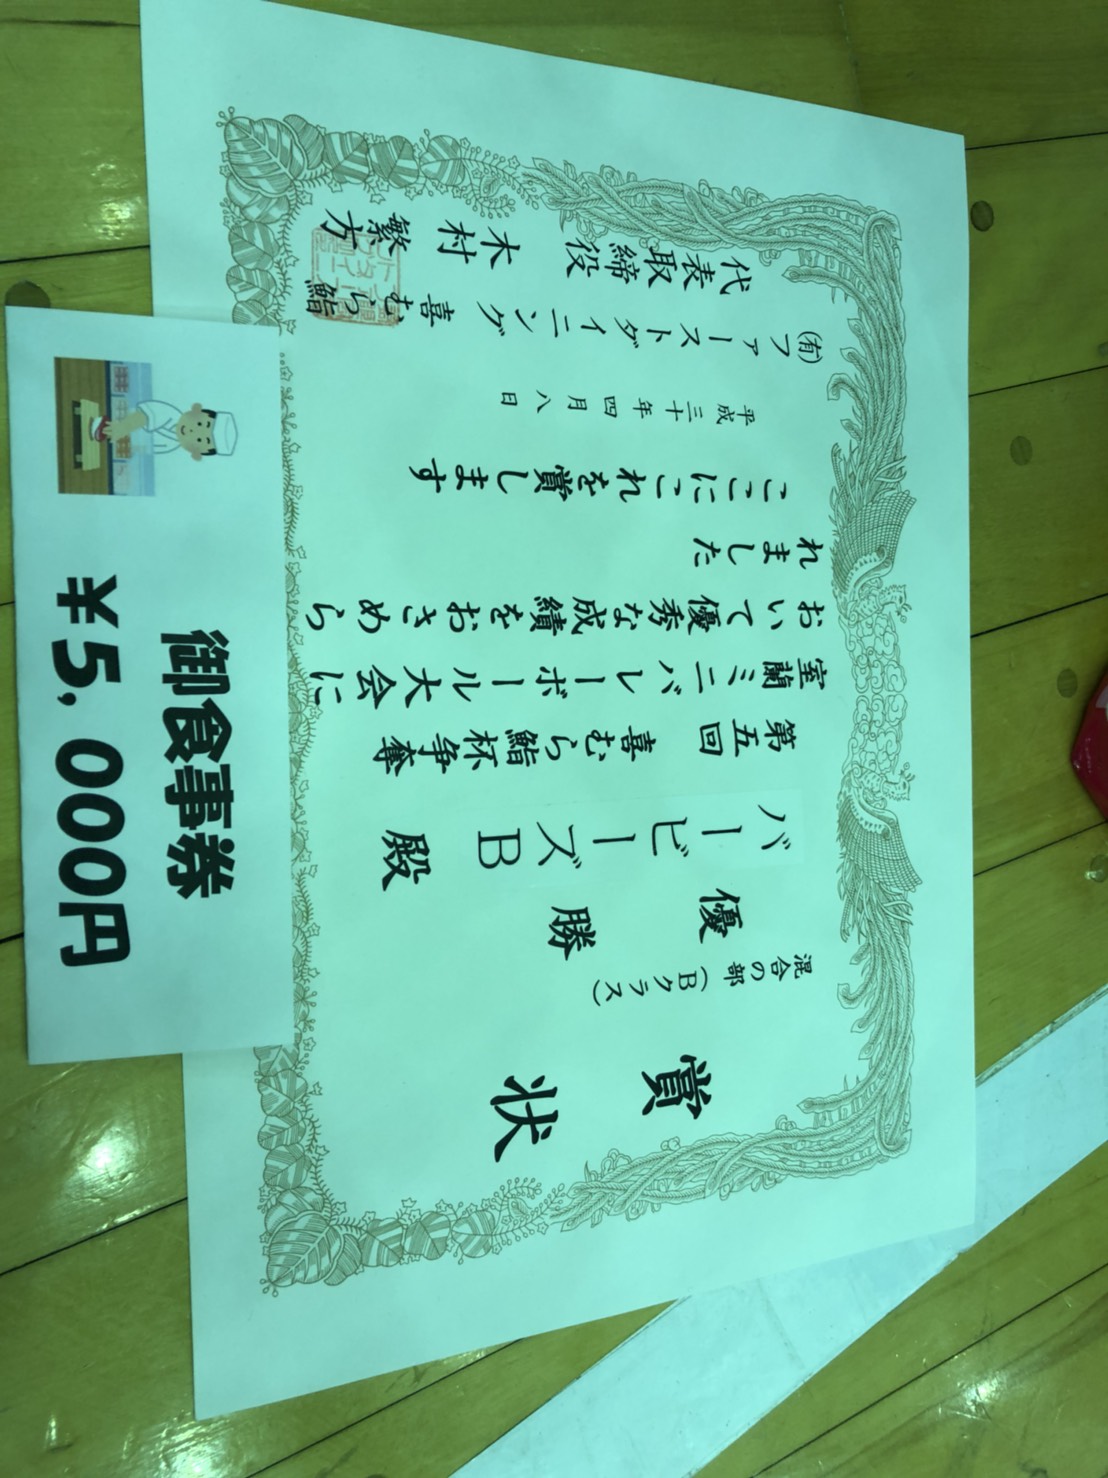 賞状
混合の部（Bクラス）
優勝
バービーズB 殿
第五回 喜むら鮨杯争奪
室蘭ミニバレーボール大会に
おいて優秀な成績をおさめら
れました
ここにこれを賞します
平成三十年四月八日
㈲ファーストダイニング 喜むら鮨
代表取締役 木村 繁方
御食事券
¥5,000円